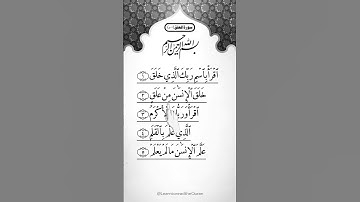 سورة العلق
بسم الله الرحمن الرحيم
ٱقۡرَأۡ بِٱسۡمِ رَبِّكَ ٱلَّذِي خَلَقَ ١
خَلَقَ ٱلۡإِنسَٰنَ مِنۡ عَلَقٍ ٢
ٱقۡرَأۡ وَرَبُّكَ ٱلۡأَكۡرَمُ ٣
ٱلَّذِي عَلَّمَ بِٱلۡقَلَمِ ٤
عَلَّمَ ٱلۡإِنسَٰنَ مَا لَمۡ يَعۡلَمۡ ٥